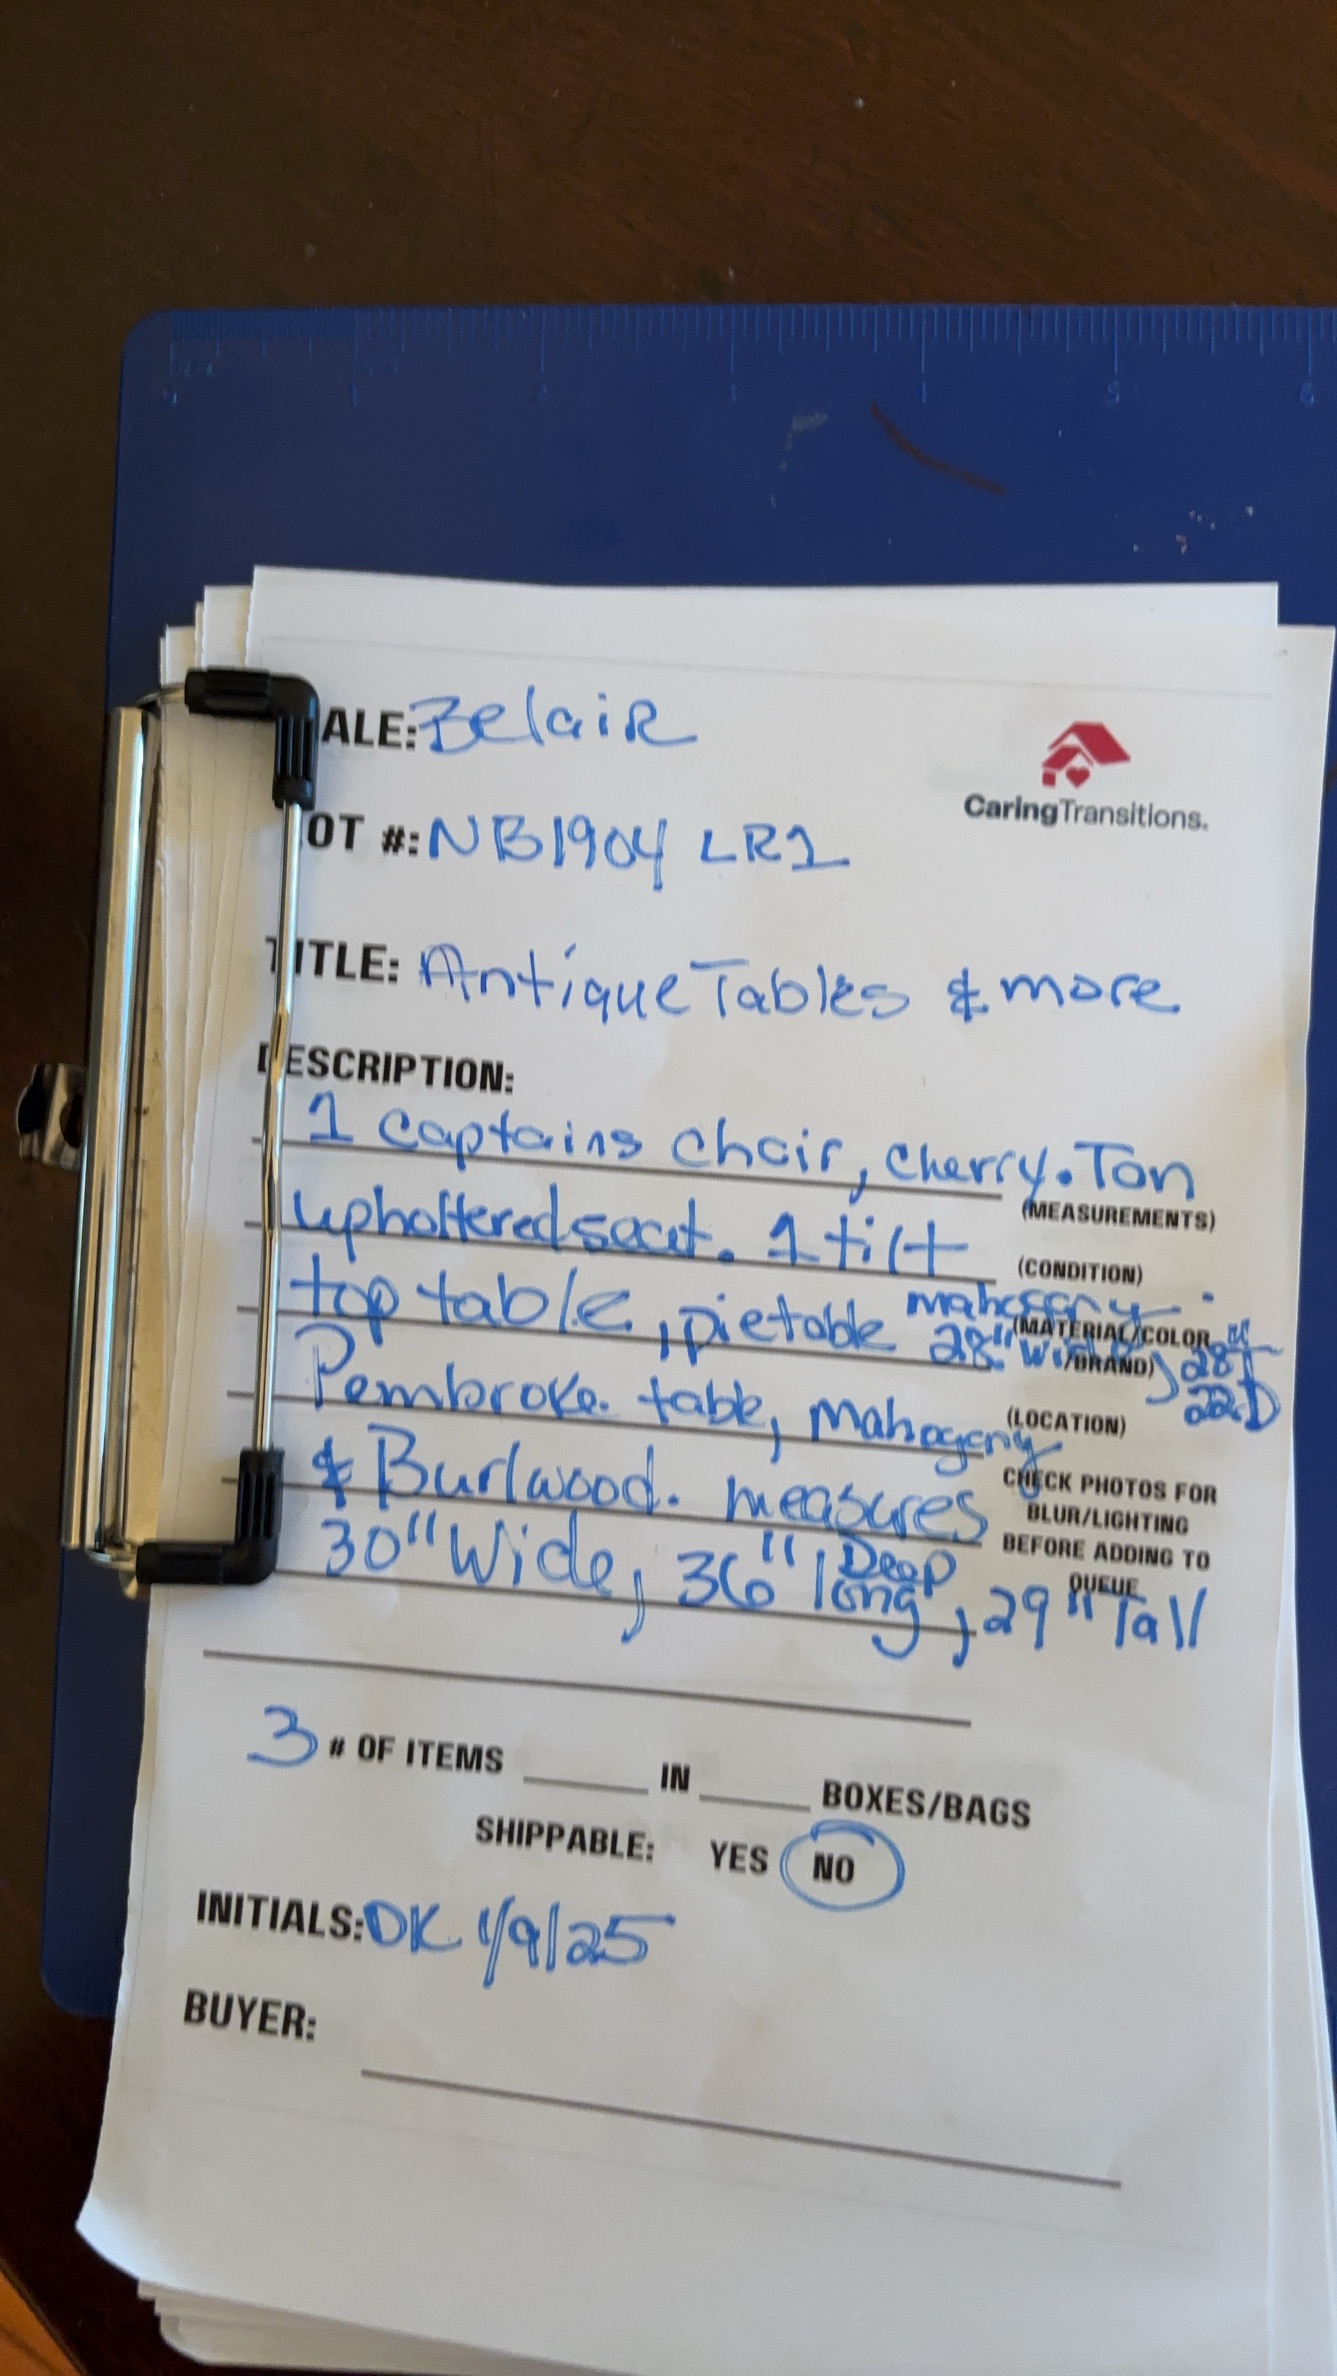 ALE: BelaiR
CaringTransitions.
OT #: NB1904 LR1
TITLE: Antique Tables & more
DESCRIPTION:
1 captains chair, cherry. Tan
(MEASUREMENTS)
upholtered seat. 1 tilt
(CONDITION)
top table, pietable mahogany.
28" Wide, 28"T
22D
(MATERIAL/COLOR
/BRAND)
Pembroke table, mahogany
(LOCATION)
& Burlwood. measures
CHECK PHOTOS FOR
BLUR/LIGHTING
BEFORE ADDING TO
QUEUE
30" Wide, 36" long, 29" Tall
Deep
3 # OF ITEMS ____ IN ____ BOXES/BAGS
SHIPPABLE: YES NO
INITIALS: DK 1/9/25
BUYER: